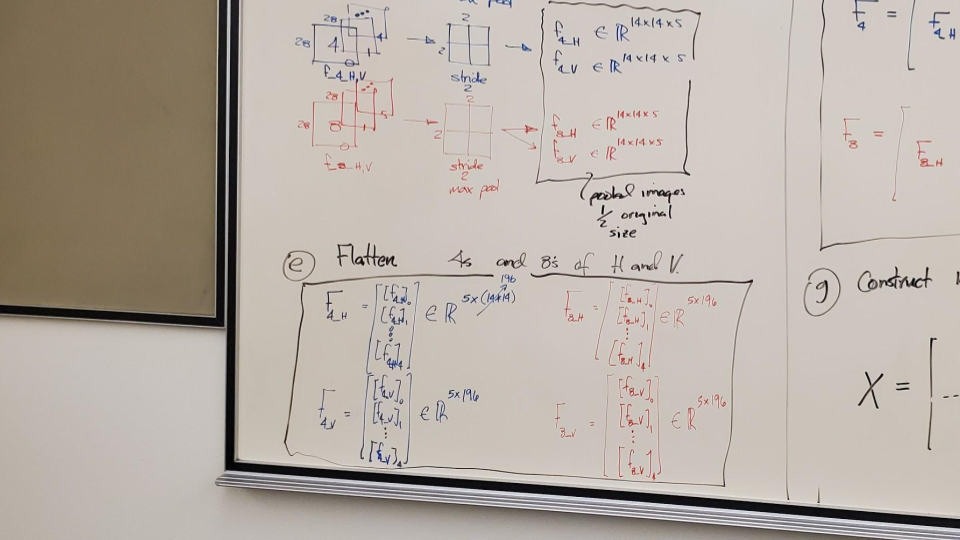 max pool
28
28
4
4
1
0
f_4_H,V
2
2
stride
2
f_4_H ∈ ℝ^14×14×5
f_4_V ∈ ℝ^14×14×5
28
28
8
5
1
0
f_8_H,V
2
2
stride
2
max pool
f_8_H ∈ ℝ^14×14×5
f_8_V ∈ ℝ^14×14×5
pooled images
1/2 original
size
e Flatten 4s and 8's of H and V.
196
F_4_H = [[f_4_H]_0 [f_4_H]_1 ⋮ [f_4_H]_4] ∈ ℝ^5×(14×14)
F_8_H = [[f_8_H]_0 [f_8_H]_1 ⋮ [f_8_H]_4] ∈ ℝ^5×196
F_4_V = [[f_4_V]_0 [f_4_V]_1 ⋮ [f_4_V]_4] ∈ ℝ^5×196
F_8_V = [[f_8_V]_0 [f_8_V]_1 ⋮ [f_8_V]_4] ∈ ℝ^5×196
F_4 = [F_4_H
F_8 = [F_8_H
g Construct
X = [ ...